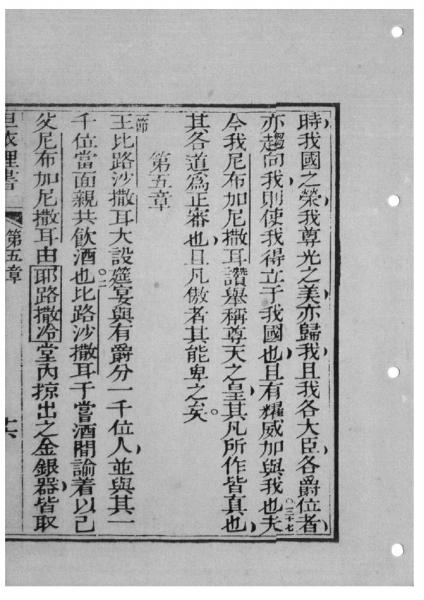 時我國之榮我尊光之美亦歸我且我各大臣各爵位者
亦趨向我則使我得立于我國也且有耀威加與我也○三十七夫
今我尼布加尼撒耳讚舉稱尊天之皇其凡所作皆真也
其各道爲正審也且凡傲者其能卑之矣。
第五章
一節王比路沙撒耳大設筵宴與有爵分一千位人並與其一
千位當面親共飲酒也○二比路沙撒耳于嘗酒間諭着以己
父尼布加尼撒耳由耶路撒冷堂內掠出之金銀器皆取
第五章